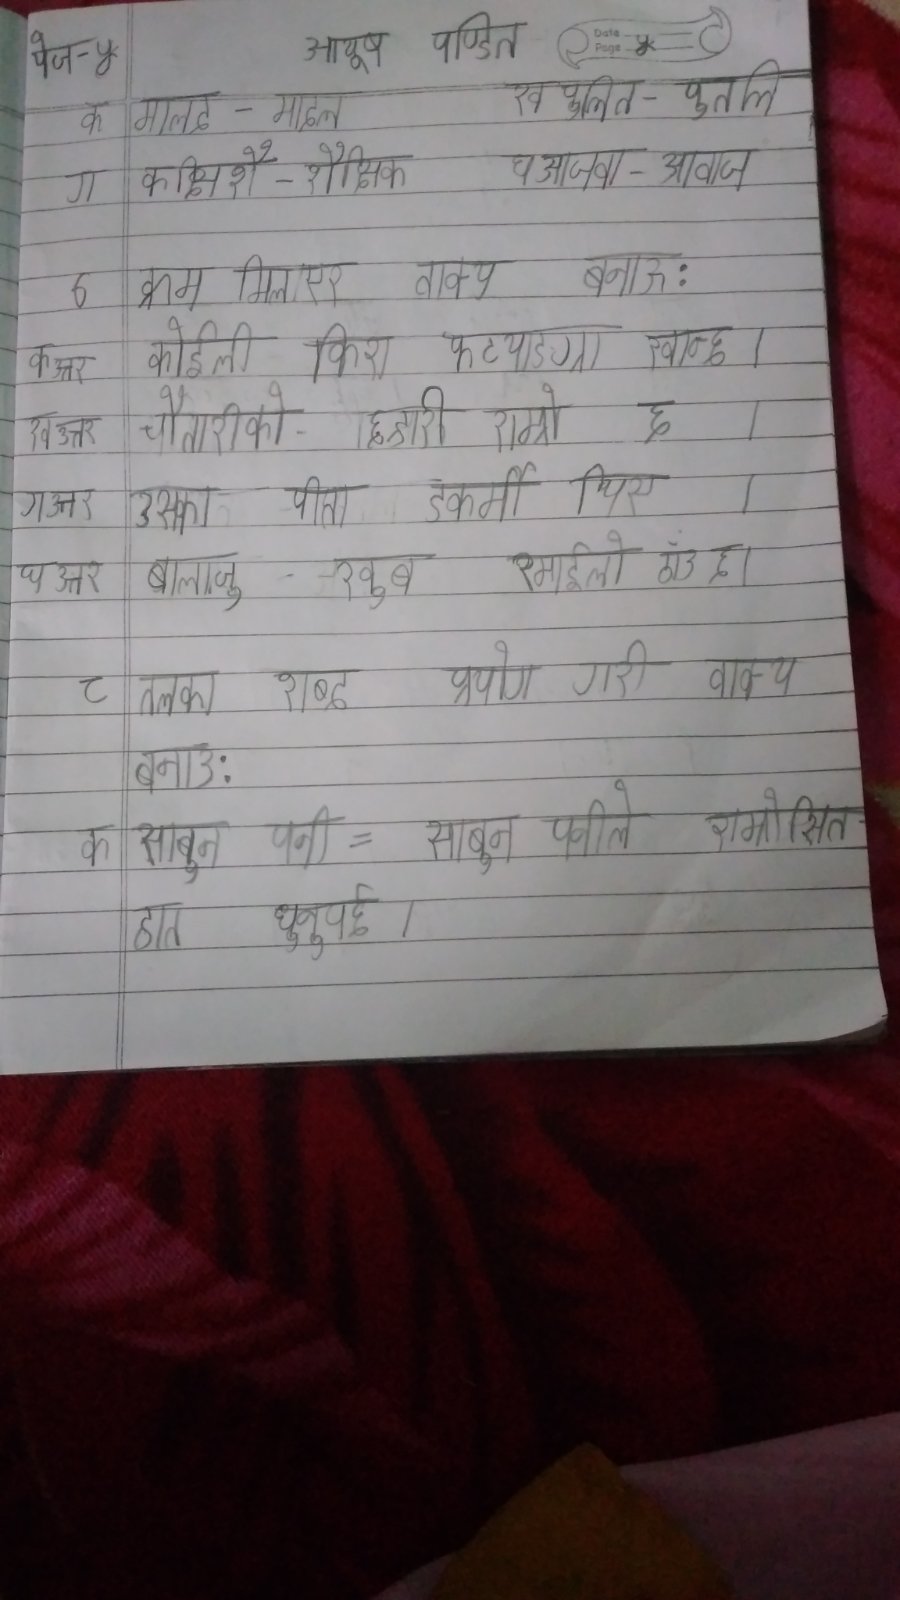 पेज-५ आयूष पण्डित Date Page ५
क मालह - माहल ख पुलित - पुतलि
ग कक्षिशै - शैक्षिक घ आजवा - आवाज
ठ क्रम मिलाएर वाक्य बनाऊ:
क उत्तर कोईली किरा फटयाङग्रा खान्छ ।
ख उत्तर चौतारीको - छहारी राम्रो छ ।
ग उत्तर उसका पीता डकर्मी थिए ।
घ उत्तर बालाजु - खुब रमाईलो ठाँउ छ।
ट तलका शब्द प्रयोग गरी वाक्य
बनाउ:
क साबुन पनी = साबुन पनीले राम्रोसित
हात धुनुपर्छ ।